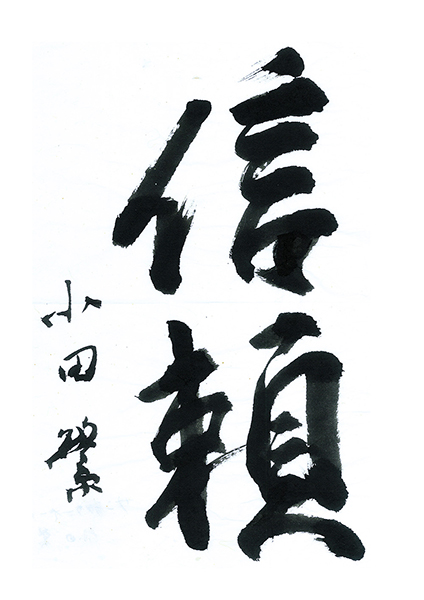 信頼
小田